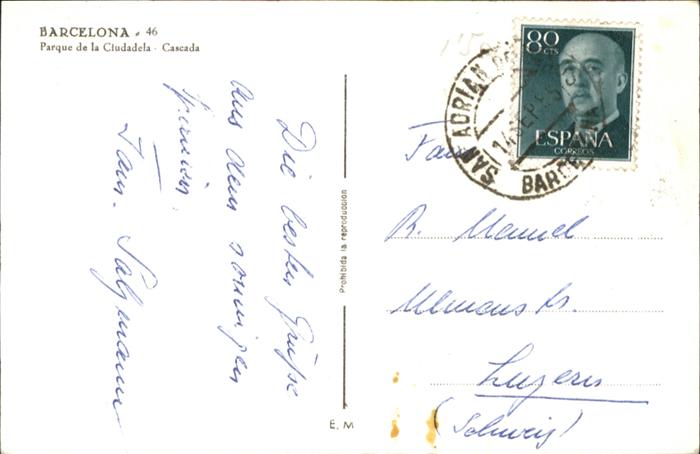 BARCELONA 46
Parque de la Ciudadela - Cascada
Die besten Grüsse
aus dem sonnigen
Spanien.
Fam. Salzmann
Prohibida la reproducción
E. M
80
CTS
ESPAÑA
CORREOS
SAN ADRIAN
14 SEP 5
BARCELONA
Fam
R.
Luzern
(Schweiz)